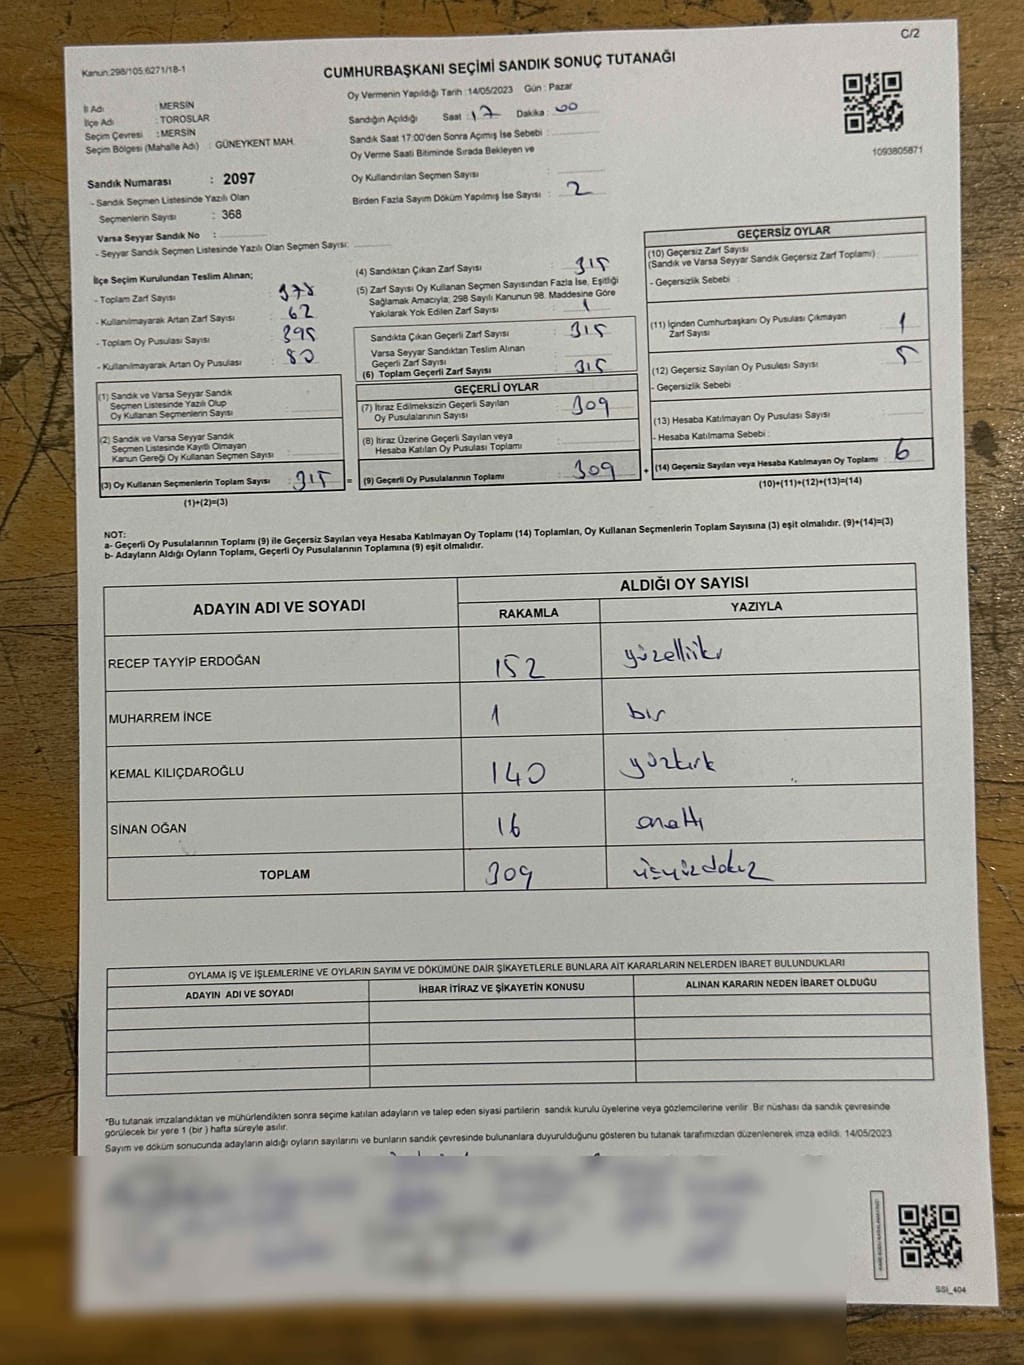 C/2
Kanun:298/105;6271/18-1
CUMHURBAŞKANI SEÇİMİ SANDIK SONUÇ TUTANAĞI
İl Adı : MERSİN
İlçe Adı : TOROSLAR
Seçim Çevresi : MERSİN
Seçim Bölgesi (Mahalle Adı) : GÜNEYKENT MAH.
Sandık Numarası : 2097
- Sandık Seçmen Listesinde Yazılı Olan
Seçmenlerin Sayısı : 368
Varsa Seyyar Sandık No :
- Seyyar Sandık Seçmen Listesinde Yazılı Olan Seçmen Sayısı:
Oy Vermenin Yapıldığı Tarih : 14/05/2023 Gün : Pazar
Sandığın Açıldığı Saat : 17 Dakika : 00
Sandık Saat 17:00'den Sonra Açımış İse Sebebi :
Oy Verme Saati Bitiminde Sırada Bekleyen ve
Oy Kullandırılan Seçmen Sayısı :
Birden Fazla Sayım Döküm Yapılmış İse Sayısı : 2
1093805871
İlçe Seçim Kurulundan Teslim Alınan;
- Toplam Zarf Sayısı :
- Kullanılmayarak Artan Zarf Sayısı : 62
- Toplam Oy Pusulası Sayısı : 395
- Kullanılmayarak Artan Oy Pusulası : 80
(1) Sandık ve Varsa Seyyar Sandık
Seçmen Listesinde Yazılı Olup
Oy Kullanan Seçmenlerin Sayısı :
(2) Sandık ve Varsa Seyyar Sandık
Seçmen Listesinde Kayıtlı Olmayan
Kanun Gereği Oy Kullanan Seçmen Sayısı :
(3) Oy Kullanan Seçmenlerin Toplam Sayısı : 315 =
(1)+(2)=(3)
(4) Sandıktan Çıkan Zarf Sayısı : 315
(5) Zarf Sayısı Oy Kullanan Seçmen Sayısından Fazla İse, Eşitliği
Sağlamak Amacıyla; 298 Sayılı Kanunun 98. Maddesine Göre
Yakılarak Yok Edilen Zarf Sayısı : 1
Sandıkta Çıkan Geçerli Zarf Sayısı : 315
Varsa Seyyar Sandıktan Teslim Alınan
Geçerli Zarf Sayısı :
(6) Toplam Geçerli Zarf Sayısı : 315
GEÇERLİ OYLAR
(7) İtiraz Edilmeksizin Geçerli Sayılan
Oy Pusulalarının Sayısı : 309
(8) İtiraz Üzerine Geçerli Sayılan veya
Hesaba Katılan Oy Pusulası Toplamı :
(9) Geçerli Oy Pusulalarının Toplamı : 309 +
GEÇERSİZ OYLAR
(10) Geçersiz Zarf Sayısı
(Sandık ve Varsa Seyyar Sandık Geçersiz Zarf Toplamı) :
- Geçersizlik Sebebi :
(11) İçinden Cumhurbaşkanı Oy Pusulası Çıkmayan
Zarf Sayısı : 1
(12) Geçersiz Sayılan Oy Pusulası Sayısı : 5
- Geçersizlik Sebebi
(13) Hesaba Katılmayan Oy Pusulası Sayısı :
- Hesaba Katılmama Sebebi :
(14) Geçersiz Sayılan veya Hesaba Katılmayan Oy Toplamı : 6
(10)+(11)+(12)+(13)=(14)
NOT:
a- Geçerli Oy Pusulalarının Toplamı (9) ile Geçersiz Sayılan veya Hesaba Katılmayan Oy Toplamı (14) Toplamları, Oy Kullanan Seçmenlerin Toplam Sayısına (3) eşit olmalıdır. (9)+(14)=(3)
b- Adayların Aldığı Oyların Toplamı, Geçerli Oy Pusulalarının Toplamına (9) eşit olmalıdır.
ADAYIN ADI VE SOYADI ALDIĞI OY SAYISI
RAKAMLA YAZIYLA
RECEP TAYYİP ERDOĞAN 152 yüzelliiki
MUHARREM İNCE 1 bir
KEMAL KILIÇDAROĞLU 140 yüzkırk
SİNAN OĞAN 16 onaltı
TOPLAM 309 üçyüzdokuz
OYLAMA İŞ VE İŞLEMLERİNE VE OYLARIN SAYIM VE DÖKÜMÜNE DAİR ŞİKAYETLERLE BUNLARA AİT KARARLARIN NELERDEN İBARET BULUNDUKLARI
ADAYIN ADI VE SOYADI İHBAR İTİRAZ VE ŞİKAYETİN KONUSU ALINAN KARARIN NEDEN İBARET OLDUĞU
*Bu tutanak imzalandıktan ve mühürlendikten sonra seçime katılan adayların ve talep eden siyasi partilerin sandık kurulu üyelerine veya gözlemcilerine verilir. Bir nüshası da sandık çevresinde
görülecek bir yere 1 (bir ) hafta süreyle asılır.
Sayım ve döküm sonucunda adayların aldığı oyların sayılarını ve bunların sandık çevresinde bulunanlara duyurulduğunu gösteren bu tutanak tarafımızdan düzenlenerek imza edildi. 14/05/2023
SSI_404